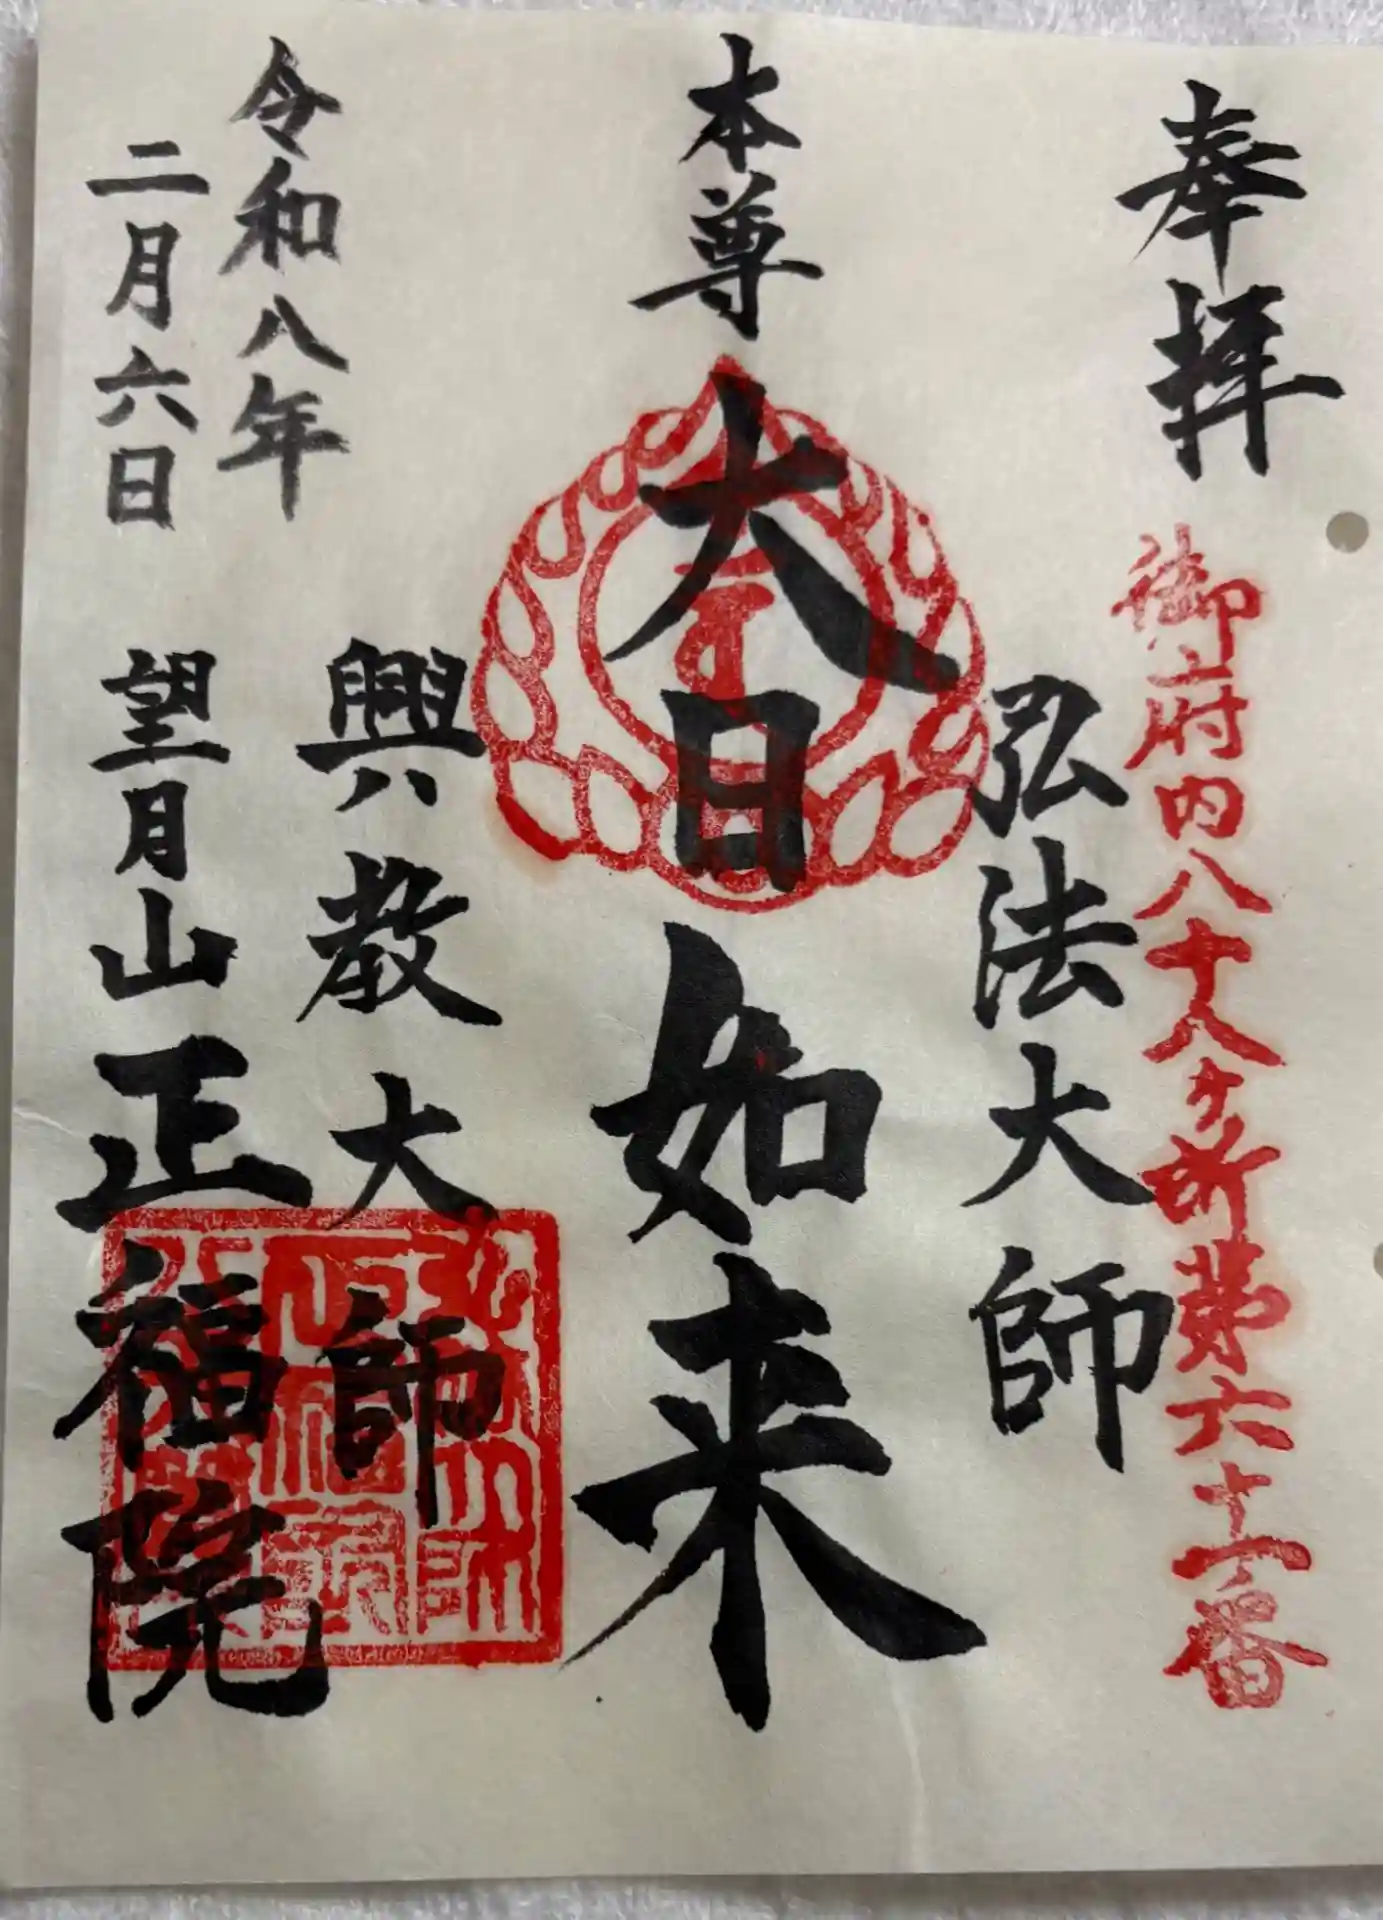 奉拝
御府内八十八ヶ所第六十一番
弘法大師
本尊
大日如来
興教大師
令和八年
二月六日
望月山正福院